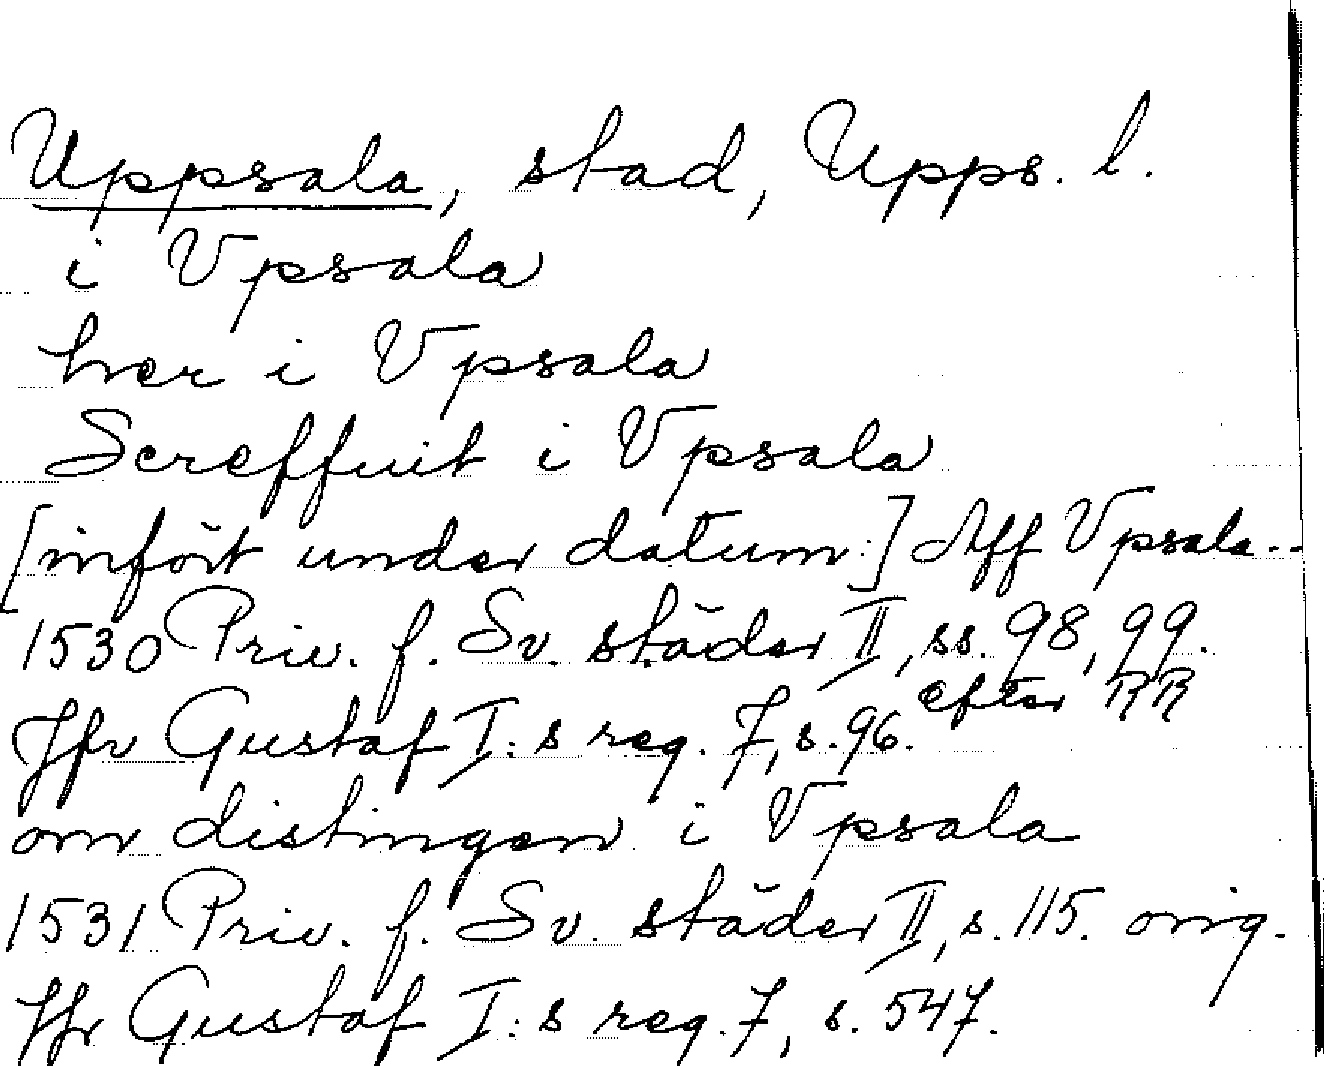 Uppsala, stad, Upps. l.
i Vpsala
her i Vpsala
Screffuit i Vpsala
[infört under datum:] Aff Vpsala..
1530 Priv. f. Sv. städer II, ss. 98, 99.
efter RR
Jfr Gustaf I:s reg. 7, s. 96.
om distingen i Vpsala
1531 Priv. f. Sv. städer II, s. 115. orig.
Jfr Gustaf I:s reg. 7, s. 547.